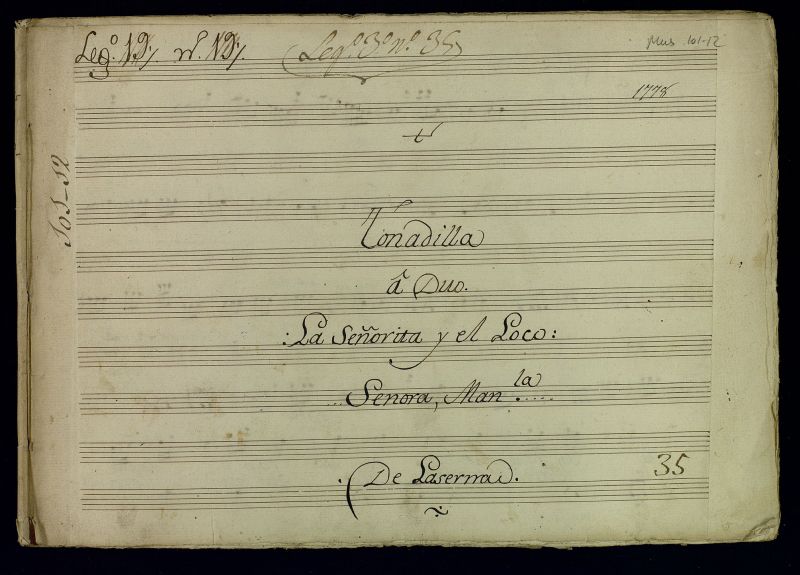 Leg.º 19. n.º 19. Leg.º 3º n.º 35 Mus 101-12
1778
101-12
Tonadilla
â Duo.
:La Señorita y el Loco:
Senora, Man.la
De Laserna.
35